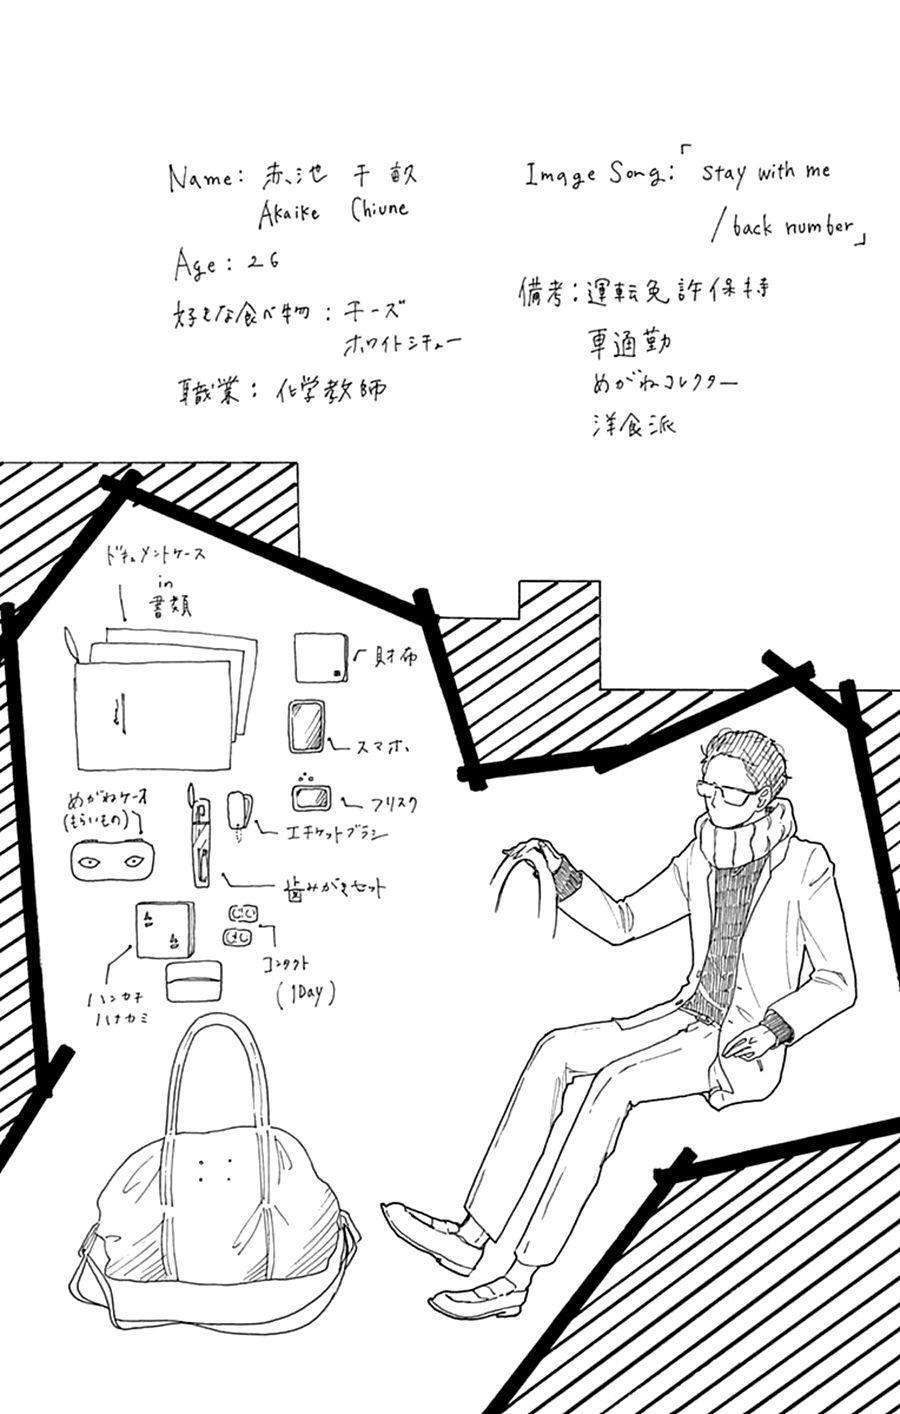 Name: 赤池 千畝
Akaike Chiune
Age: 26
好きな食べ物: チーズ
ホワイトシチュー
職業: 化学教師
Image Song:「stay with me
/back number」
備考: 運転免許保持
車通勤
めがねコレクター
洋食派
ドキュメントケース
in
書類
財布
スマホ
めがねケース
(もらいもの)
フリスク
エチケットブラシ
歯みがきセット
コンタクト
(1Day)
ハンカチ
ハナカミ